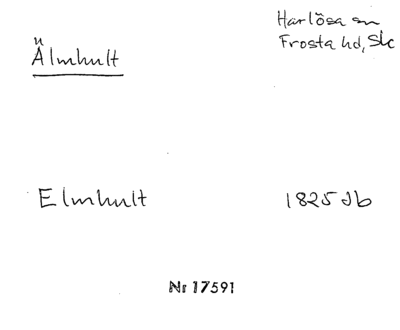 Harlösa sn
Frosta hd, Sk
Älmhult
Elmhult 1825 Jb
Nr 17591